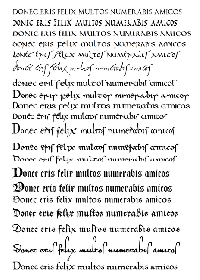 DONEC ERIS FELIX MULTOS NUMERABIS AMICOS
DONEC ERIS FELIX MULTOS NUMERABIS AMICOS
DONEC ERIS FELIX MULTOS NUMERABIS AMICOS
donec eris felix multos numerabis amicos
donec eris felix multos numerabis amicos
donec eris felix multos numerabis amicos
donec eris felix multos numerabis amicos
Donec eris felix multos numerabis amicos
Donec eris felix multos numerabis amicos
Donec eris felix multos numerabis amicos
Donec eris felix multos numerabis amicos
Donec eris felix multos numerabis amicos
Donec eris felix multos numerabis amicos
Donec eris felix multos numerabis amicos
Donec eris felix multos numerabis amicos
Donec eris felix multos numerabis amicos
Donec eris felix multos numerabis amicos
Donec eris felix multos numerabis amicos
Donec eris felix multos numerabis amicos
Donec eris felix multos numerabis amicos